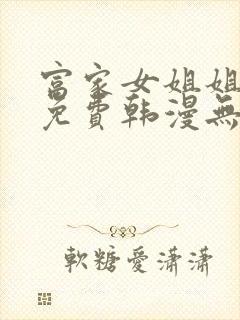 富家女姐姐
免費韩漫無
軟糖愛瀟瀟